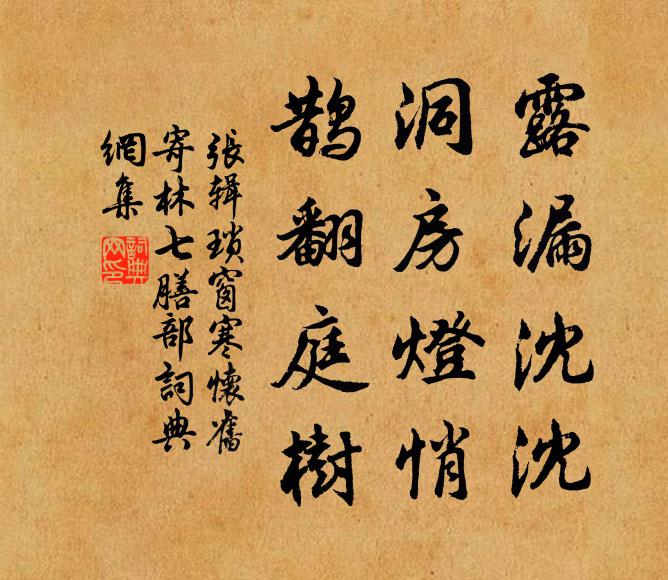 露漏沈沈
洞房燈悄
鵲翻庭樹
張辑瑣窗寒懷舊
寄林七膳部詞典
網集
詞典網印